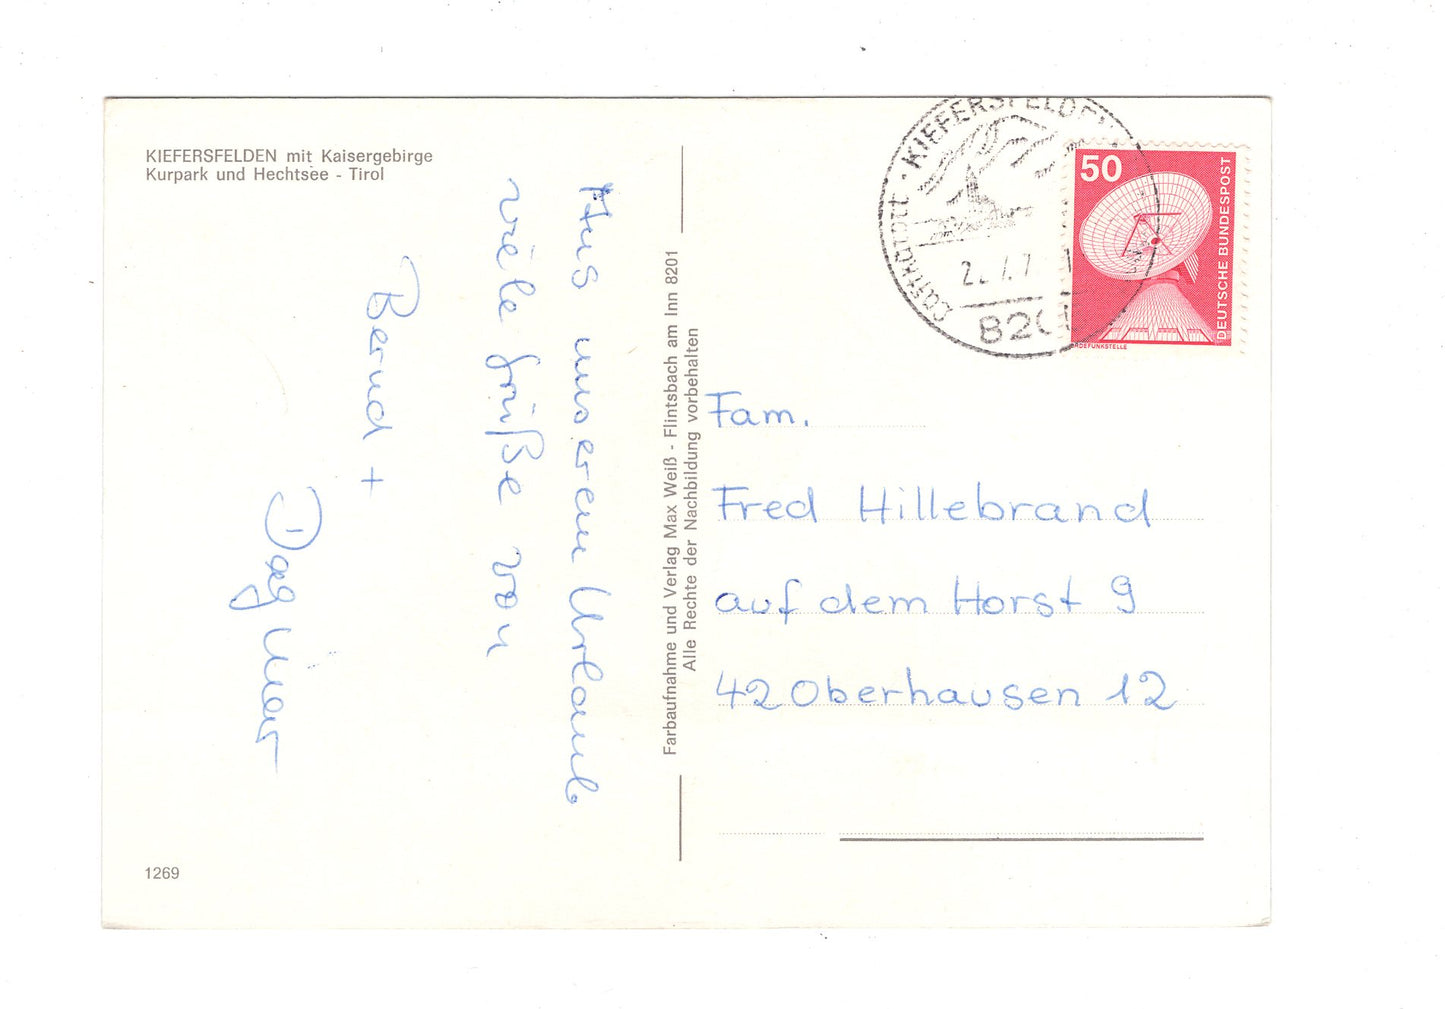 KIEFERSFELDEN mit Kaisergebirge
Kurpark und Hechtsee - Tirol
Aus unserem Urlaub
viele Grüße von
Bernd +
Dagmar
1269
Farbaufnahme und Verlag Max Weiß - Flintsbach am Inn 8201
Alle Rechte der Nachbildung vorbehalten
Luftkurort · KIEFERSFELDEN
820
50
DEUTSCHE BUNDESPOST
ERDEFUNKSTELLE
Fam.
Fred Hillebrand
auf dem Horst 9
42 Oberhausen 12